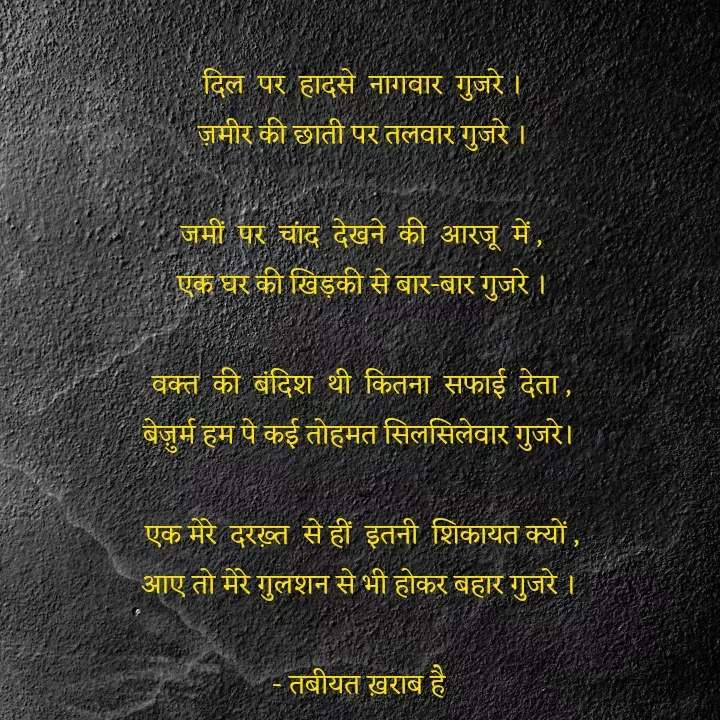 दिल पर हादसे नागवार गुजरे ।
ज़मीर की छाती पर तलवार गुजरे ।
जमीं पर चांद देखने की आरजू में ,
एक घर की खिड़की से बार-बार गुजरे ।
वक्त की बंदिश थी कितना सफाई देता ,
बेजुर्म हम पे कई तोहमत सिलसिलेवार गुजरे।
एक मेरे दरख़्त से हीं इतनी शिकायत क्यों ,
आए तो मेरे गुलशन से भी होकर बहार गुजरे ।
- तबीयत ख़राब है